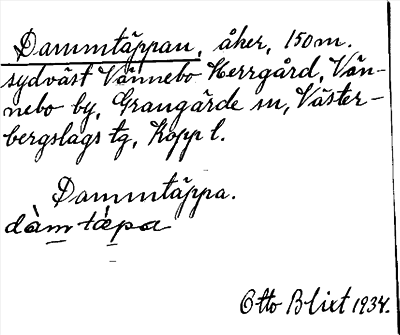 Dammtäppan, åker, 150 m.
sydväst Vännebo Herrgård, Vän-
nebo by, Grangärde sn, Väster-
bergslags tg, Kopp l.
Dammtäppa.
dàm tǽpa
Otto Blixt 1934.